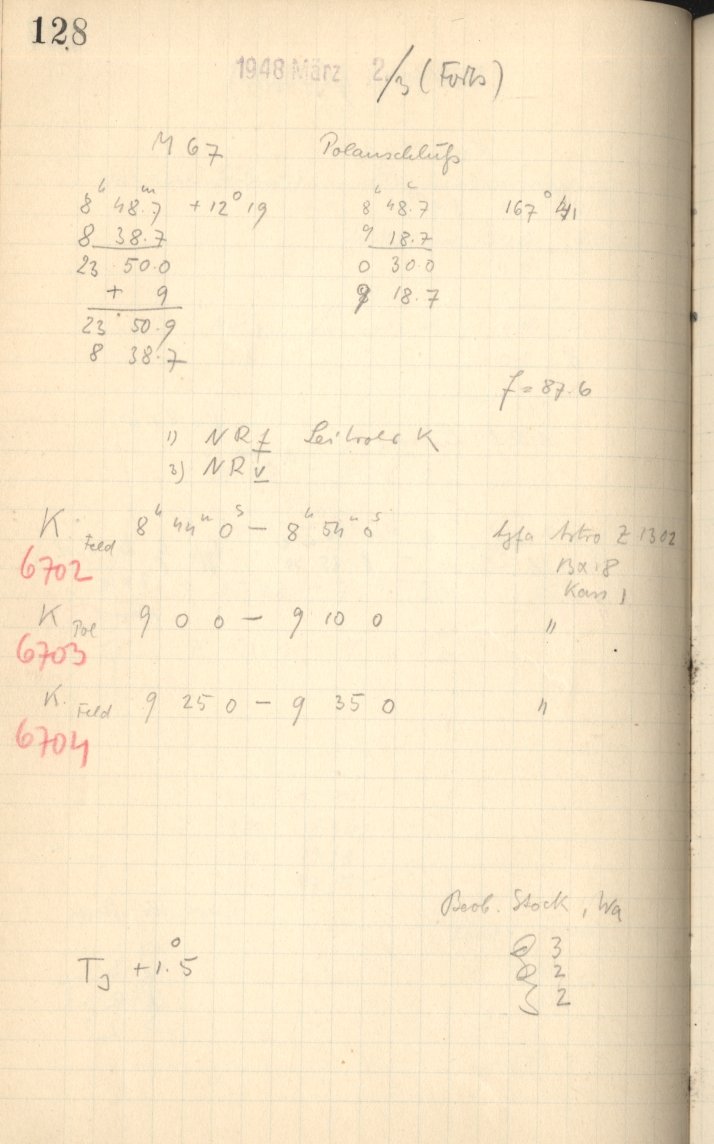 128
1948 März 2./3 (Forts)
M 67 Polanschluß
8h 48.m7 + 12° 19 8h 48.7 167° 41
8 38.7 9 18.7
23 50.0 0 30.0
+ 9 9 18.7
23 50.9
8 38.7
f = 87.6
1) NR f K
3) NR v
K. Feld 8h 44m 0s – 8h 54m 0s Agfa Astro Z 1302
6702 Kass 1
K Pol 9 0 0 – 9 10 0 "
6703
K. Feld 9 25 0 – 9 35 0 "
6704
Beob. Stock, Wa
3
TJ +1.°5 2
2